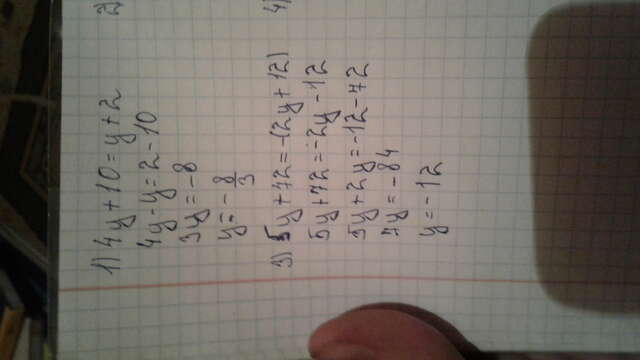 1) 4y+10=y+2
4y-y=2-10
3y=-8
y=-8/3
3) 5y+72=-(2y+12)
5y+72=-2y-12
5y+2y=-12-72
7y=-84
y=-12
4)